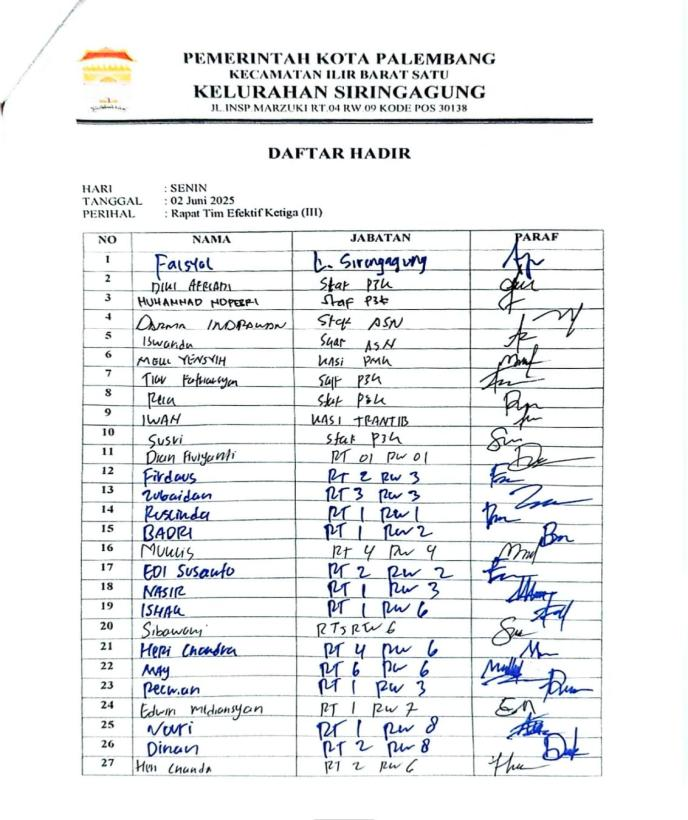 PEMERINTAH KOTA PALEMBANG
KECAMATAN ILIR BARAT SATU
KELURAHAN SIRINGAGUNG
JL. INSP MARZUKI RT.04 RW 09 KODE POS 30138
DAFTAR HADIR
HARI : SENIN
TANGGAL : 02 Juni 2025
PERIHAL : Rapat Tim Efektif Ketiga (III)
NO NAMA JABATAN PARAF
1 Faisyal L. Siringagung
2 DIKI AFRIADI Staf P3K
3 MUHAMMAD Staf P3K
4 DARMA INDRAWAN Staf ASN
5 Iswandu Staf ASN
6 YENSYIH KASI PMK
7 Staf P3K
8 Staf P3K
9 IWAN KASI TRANTIB
10 Susri Staf P3K
11 Dian RT 01 RW 01
12 Firdaus RT 2 RW 3
13 Zubaidah RT 3 RW 3
14 Ruslinda RT 1 RW 1
15 BADRI RT 1 RW 2
16 Muklis RT 4 RW 4
17 EDI Susanto RT 2 RW 2
18 NASIR RT 1 RW 3
19 ISHAK RT 1 RW 6
20 Sibawani RT 5 RW 6
21 Heri Chandra RT 4 RW 6
22 MAY RT 6 RW 6
23 RT 1 RW 3
24 Edwin RT 1 RW 7
25 Nuri RT 1 RW 8
26 Dinan RT 2 RW 8
27 Heri Chanda RT 2 RW 6